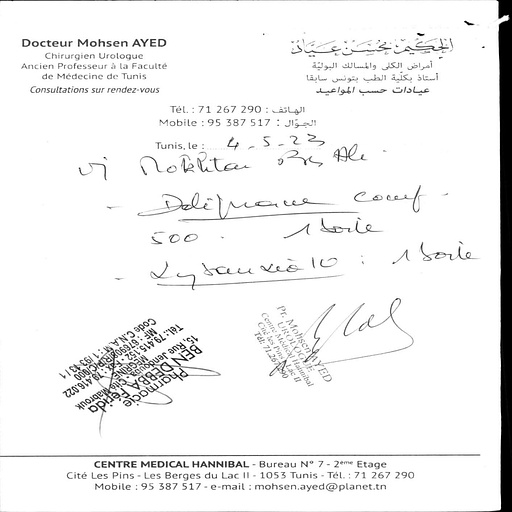 Docteur Mohsen AYED
Chirurgien Urologue
Ancien Professeur à la Faculté
de Médecine de Tunis
Consultations sur rendez-vous
الحكيم محسن عياد
أمراض الكلى والمسالك البولية
أستاذ بكلية الطب بتونس سابقا
عيادات حسب المواعيد
Tél. : 71 267 290 : الهاتف
Mobile : 95 387 517 : الجوّال
Tunis, le : 4-5-23
Mokhtar Ben Ali
- Doliprane comp
500 . 1 boite
- : 1 boite
Pharmacie
BEN DEBBA Férida
15, Rue
Pr. Mohsen AYED
UROLOGUE
Centre Médical Hannibal
Tél: 71.267.290
CENTRE MEDICAL HANNIBAL - Bureau N° 7 - 2ème Etage
Cité Les Pins - Les Berges du Lac II - 1053 Tunis - Tél. : 71 267 290
Mobile : 95 387 517 - e-mail : mohsen.ayed@planet.tn